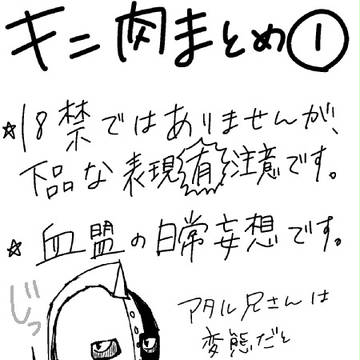 キン肉まとめ①
☆18禁ではありませんが、
下品な表現有注意です。
☆血盟の日常妄想です。
じっ
アタル兄さんは
変態だと